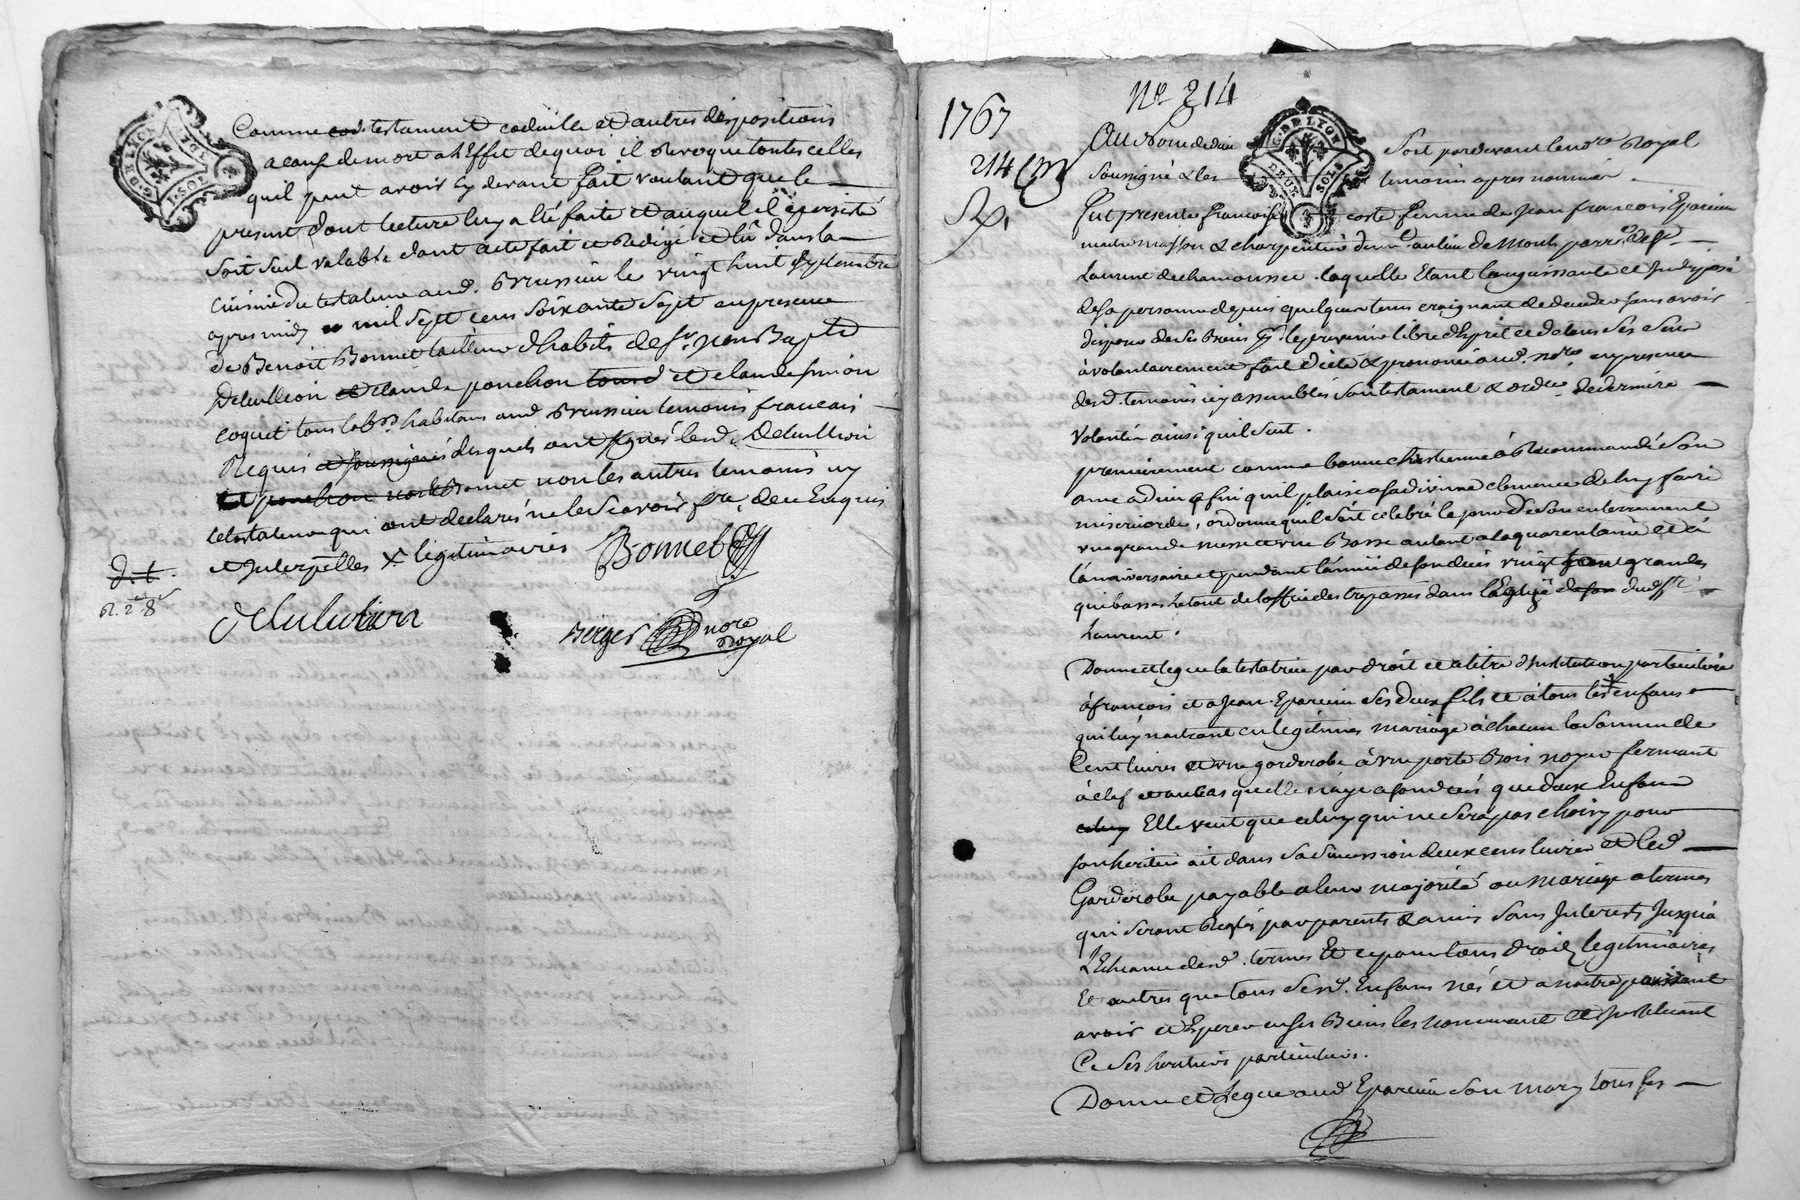 G. DE LYON
DEUX SOLS
Comme cod. testament codicille et autres dispositions
a cause de mort a l'Effet de quoy il Revoque toutes celles
quil peut avoir cy devant fait voulant que le
present dont lecture luy a été faite et auquel il a persisté
soit seul valable dont acte fait et Redigé et lû dans la
cuisine du testateur aud. Brussieu le vingt huit septembre
apres midy mil sept cens soixante sept en presence
de Benoit Bonnet tailleur d'habits de Sr. Jean Bapte
Delullion et claude ponchon et claude simon
coquet tous lab. habitans aud Brussieu temoins francais
Requis et soussignés desquels ont signé led. Delullion
et ponchon Bonnet non les autres temoins ny
le testateur qui ont declaré ne le Scavoir fre. de ce Enquis
et Interpellés x legitimaires Bonnet
d. t.
R. 2 8
Delulion
Berger nore
Royal
1767
Nº 214
214
Au Nom de dieu
G. DE LYON
DEUX SOLS
Soit pardevant le nore Royal
Soussigné & les
temoins apres nommés
Fut presente francoise coste femme de Jean francois Eparcieu
maitre masson & charpentier demt. au lieu de Monts parre. de St
Laurent de chamousset laquelle Etant languissante et Indisposé
de sa personne depuis quelque tems craignant de deceder sans avoir
disposé de ses Biens libre d'esprit et de tous ses sens
à volontairement fait dicté & prononcé aud. nore en presence
desd. temoins icy assemblés son testament & ordce. de derniere
Volonté ainsi quil suit.
premierement comme bonne chretienne à Recommandé son
ame a dieu afin quil plaise a sa divine clemence de luy faire
misericorde, ordonne quil soit celebré le jour de son enterrement
une grande messe et une Basse autant a la quarentaine et à
l'anniversaire et pendant l'année de son deces vingt grandes
que basses le tout de l'office des trepassés dans l'Eglise de dud. St.
Laurent.
Donne et legue la testatrice par droit et a titre d'Institution particuliere
à francois et a Jean Eparcieu ses deux fils et à tous les enfans
qui luy naitront en legitime mariage à chacun la somme de
Cent livres et une garderobe à une porte Bois noyer fermant
à clef et au cas quelle n'aye a son deces que deux Enfans
Elle veut que celuy qui ne sera pas choisy pour
son heritier ait dans sa succession deux cens livres et led
Garderobe payable a leur majorité ou mariage a termes
qui seront Reglés par parents & amis sans Interets Jusqu'a
L'Echeance desd. termes Et ce pour tous droits legitimaires
Et autres que tous sesd. Enfans nés et a naitre puissent
avoir et Esperer en ses Biens les nommant et Instituant
Ce ses heritiers particuliers.
Donne et Legue aud Eparcieu son mary tous ses